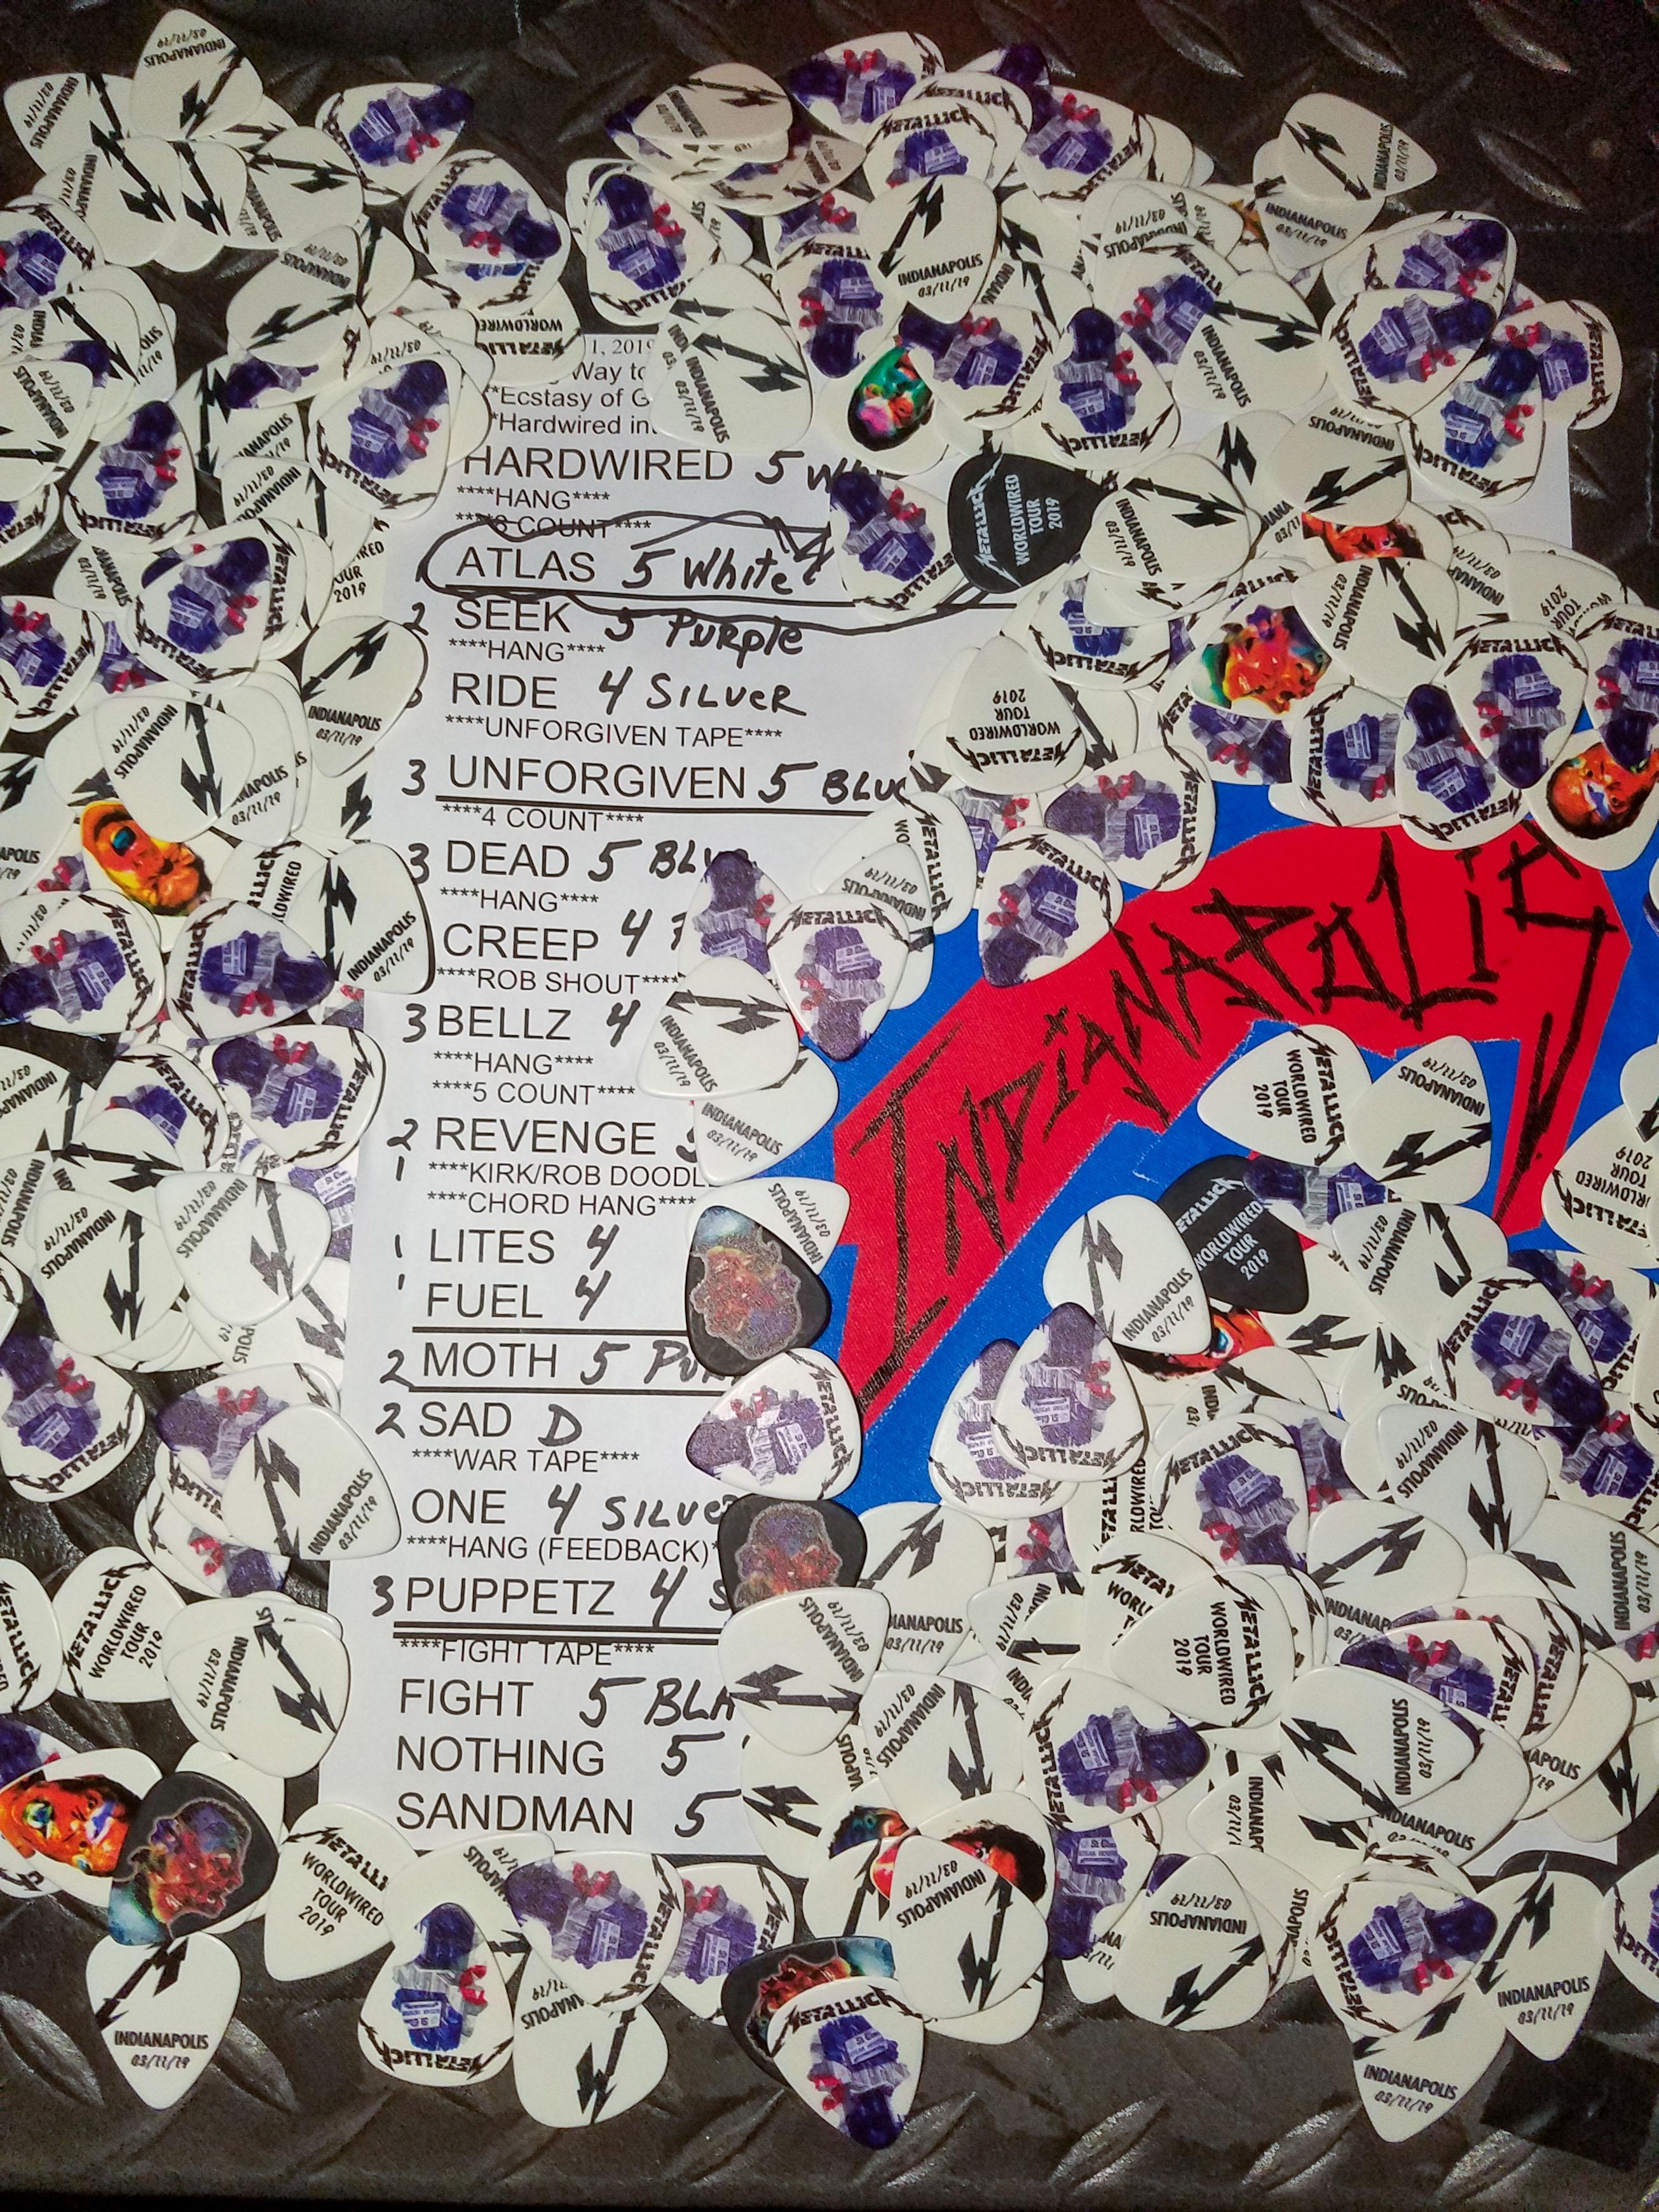 1, 2019
Way to
**Ecstasy of G
*Hardwired in
HARDWIRED 5 Wh
****HANG****
****8 COUNT****
ATLAS 5 White
2 SEEK 5 Purple
****HANG****
RIDE 4 SILVER
****UNFORGIVEN TAPE****
3 UNFORGIVEN 5 BLU
****4 COUNT****
3 DEAD 5 BLU
****HANG****
CREEP 4
****ROB SHOUT****
3 BELLZ 4
****HANG****
****5 COUNT****
2 REVENGE 5
1 ****KIRK/ROB DOODL
****CHORD HANG****
1 LITES 4
1 FUEL 4
2 MOTH 5 Pu
2 SAD D
****WAR TAPE****
ONE 4 SILVE
****HANG (FEEDBACK)*
3 PUPPETZ 4 S
****FIGHT TAPE****
FIGHT 5 BLA
NOTHING 5
SANDMAN 5
INDIANAPOLIS
METALLICA
WORLDWIRED
TOUR
2019
INDIANAPOLIS
03/11/19